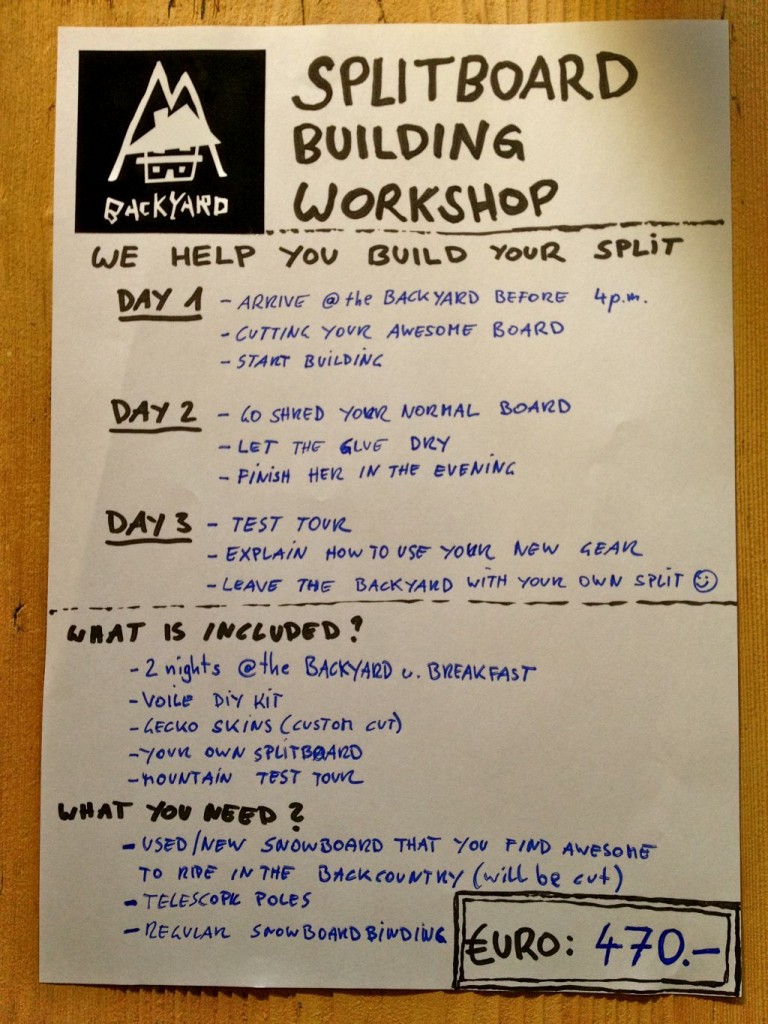 BACKYARD
SPLITBOARD
BUILDING
WORKSHOP
WE HELP YOU BUILD YOUR SPLIT
DAY 1 - ARRIVE @ the BACKYARD BEFORE 4p.m.
- CUTTING YOUR AWESOME BOARD
- START BUILDING
DAY 2 - GO SHRED YOUR NORMAL BOARD
- LET THE GLUE DRY
- FINISH HER IN THE EVENING
DAY 3 - TEST TOUR
- EXPLAIN HOW TO USE YOUR NEW GEAR
- LEAVE THE BACKYARD WITH YOUR OWN SPLIT ☺
WHAT IS INCLUDED?
- 2 nights @ the BACKYARD u. BREAKFAST
- VOILE DIY KIT
- GECKO SKINS (CUSTOM CUT)
- YOUR OWN SPLITBOARD
- MOUNTAIN TEST TOUR
WHAT YOU NEED?
- USED/NEW SNOWBOARD THAT YOU FIND AWESOME
TO RIDE IN THE BACKCOUNTRY (will be cut)
- TELESCOPIC POLES
- REGULAR SNOWBOARDBINDING
€URO: 470.-